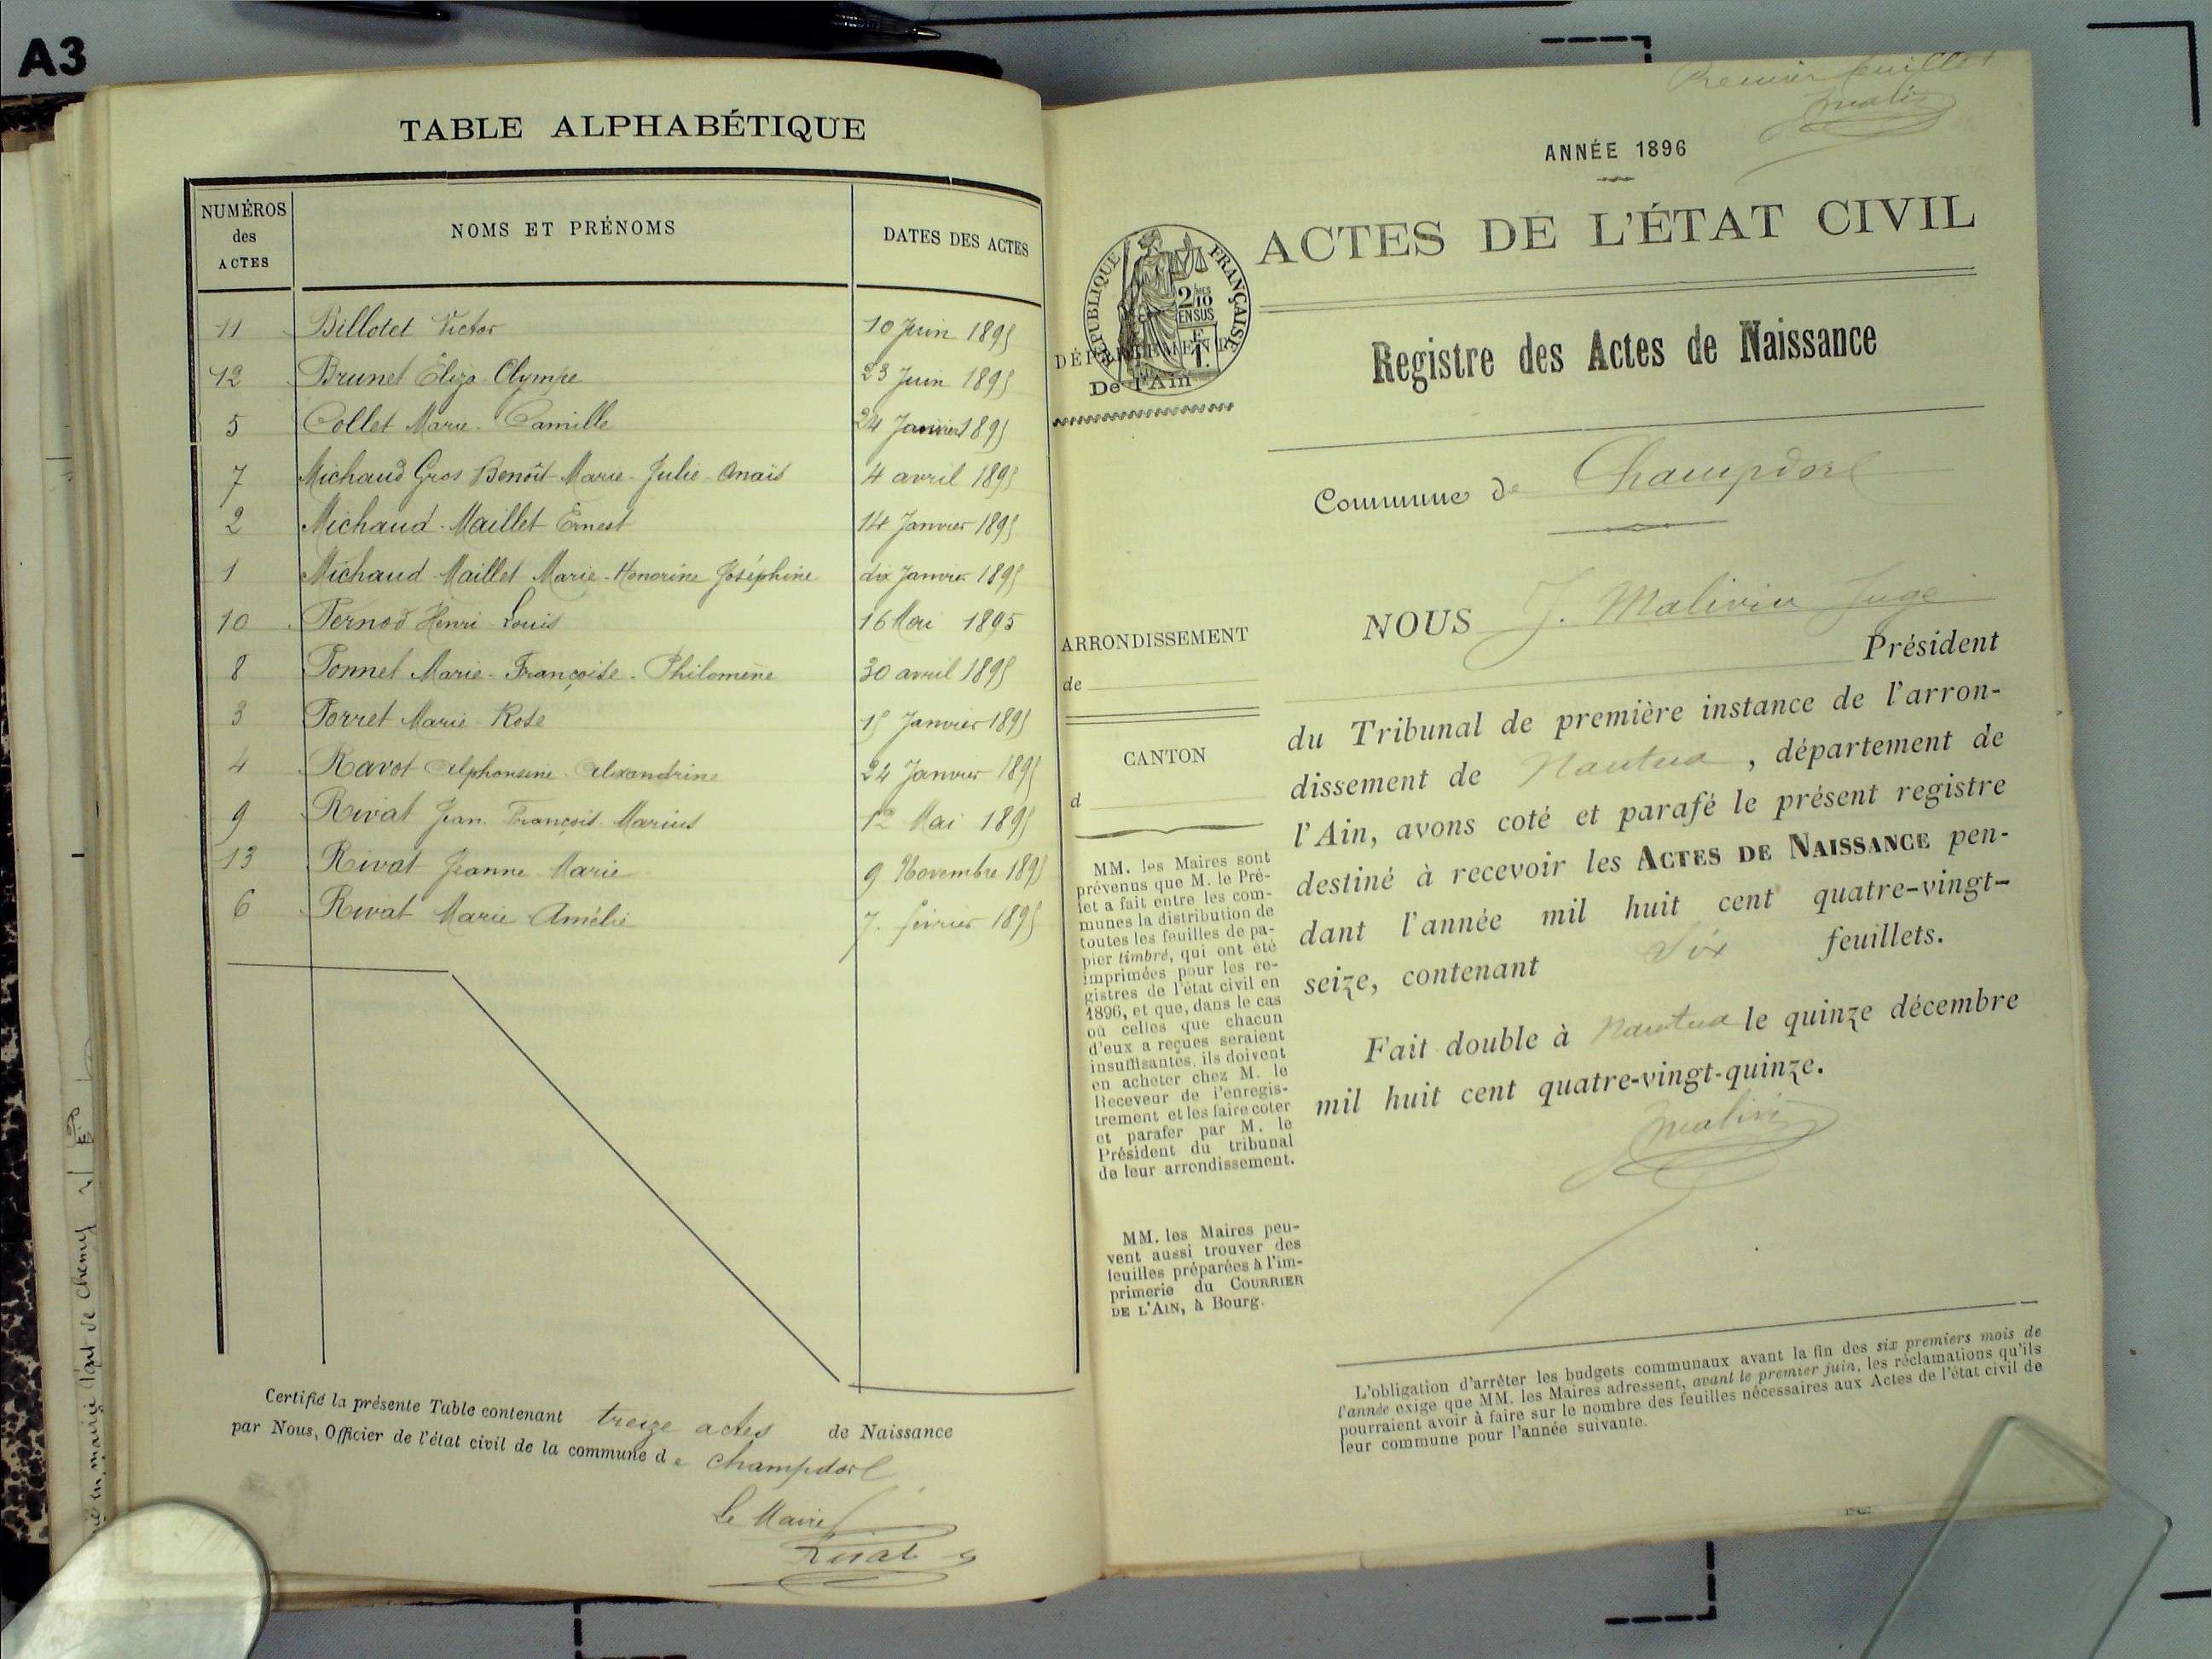 A3
TABLE ALPHABÉTIQUE
NUMÉROS
des
ACTES
NOMS ET PRÉNOMS
DATES DES ACTES
11 Billotet Victor 10 Juin 1895
12 Brunet Éliza Olympe 23 Juin 1895
5 Collet Marie-Camille 24 Janvier 1895
7 Michaud Gros Benoît Marie-Julie-Anaïs 4 avril 1895
2 Michaud-Maillet Ernest 14 Janvier 1895
1 Michaud-Maillet Marie-Honorine Joséphine dix Janvier 1895
10 Pernod Henri-Louis 16 Mai 1895
8 Ponnet Marie-Françoise-Philomène 30 avril 1895
3 Porret Marie-Rose 15 Janvier 1895
4 Ravot Alphonsine-Alexandrine 24 Janvier 1895
9 Rivat Jean-François-Marius 12 Mai 1895
13 Rivat Jeanne-Marie 9 Novembre 1895
6 Rivat Marie Amélie 7. février 1895
Certifié la présente Table contenant treize actes de Naissance
par Nous, Officier de l'état civil de la commune de Champdor
Le Maire
Rivat
Premier feuillet
Malivin
ANNÉE 1896
ACTES DE L'ÉTAT CIVIL
RÉPUBLIQUE FRANÇAISE
2/10
EN SUS
DÉPARTEMENT
De l'Ain
Registre des Actes de Naissance
Commune de Champdor
NOUS J. Malivin Juge
Président
du Tribunal de première instance de l'arron-
dissement de Nantua, département de
l'Ain, avons coté et parafé le présent registre
destiné à recevoir les ACTES DE NAISSANCE pen-
dant l'année mil huit cent quatre-vingt-
seize, contenant six feuillets.
Fait double à Nantua le quinze décembre
mil huit cent quatre-vingt-quinze.
Malivin
ARRONDISSEMENT
de
CANTON
d
MM. les Maires sont
prévenus que M. le Pré-
fet a fait entre les com-
munes la distribution de
toutes les feuilles de pa-
pier timbré, qui ont été
imprimées pour les re-
gistres de l'état civil en
1896, et que, dans le cas
où celles que chacun
d'eux a reçues seraient
insuffisantes, ils doivent
en acheter chez M. le
Receveur de l'enregis-
trement et les faire coter
et parafer par M. le
Président du tribunal
de leur arrondissement.
MM. les Maires peu-
vent aussi trouver des
feuilles préparées à l'im-
primerie du COURRIER
DE L'AIN, à Bourg.
L'obligation d'arrêter les budgets communaux avant la fin des six premiers mois de
l'année exige que MM. les Maires adressent, avant le premier juin, les réclamations qu'ils
pourraient avoir à faire sur le nombre des feuilles nécessaires aux Actes de l'état civil de
leur commune pour l'année suivante.